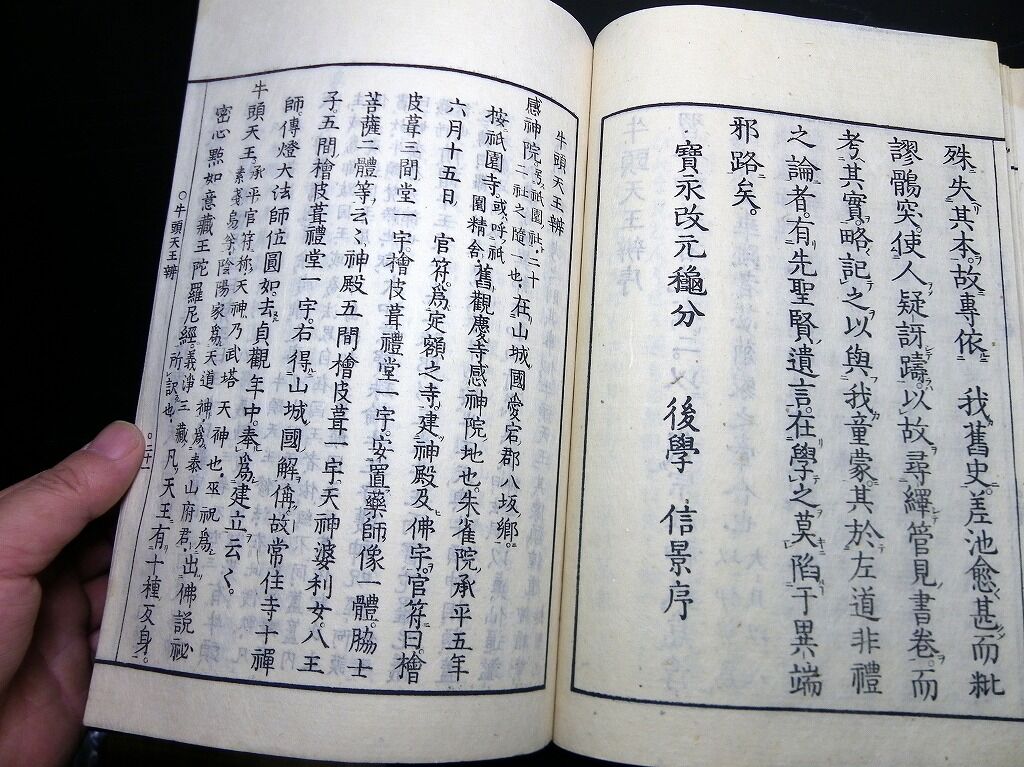 殊失其本。故專依　我舊史。差池愈甚而紕
謬鶻突。使人疑訝躊。以故尋繹管見書卷。而
考其實。略記之以與我童蒙。其於左道非禮
之論者。有先聖賢遺言。在學之莫陷于異端
邪路矣。
寶永改元龝分二。後學　信景序
牛頭天王辨
感神院号祇園社。二十二社之隨一也。在山城國愛宕郡八坂鄉。
按祇園寺。或呼祇園精舍。舊觀慶寺感神院地也。朱雀院承平五年
六月十五日　官符。爲定額之寺。建神殿及佛宇。官符曰檜
皮葺三間堂一宇檜皮葺禮堂一字。安置藥師像一體。脇士
菩薩二體等云〻。神殿五間檜皮葺一宇。天神婆利女。八王
子。五間檜皮葺禮堂一宇。右得山城國解偁。故常住寺十禪
師。傳燈大法師位圓如。去貞觀年中。奉爲建立云〻。
牛頭天王。承平官符。称天神。乃武塔天神也。巫祝爲素戔烏等。陰陽家爲天道神。爲泰山府君。出佛說祕
密心點如意藏王陀羅尼經。義淨三藏所訳也。凡天王有十種反身。
○牛頭天王辨
○二十